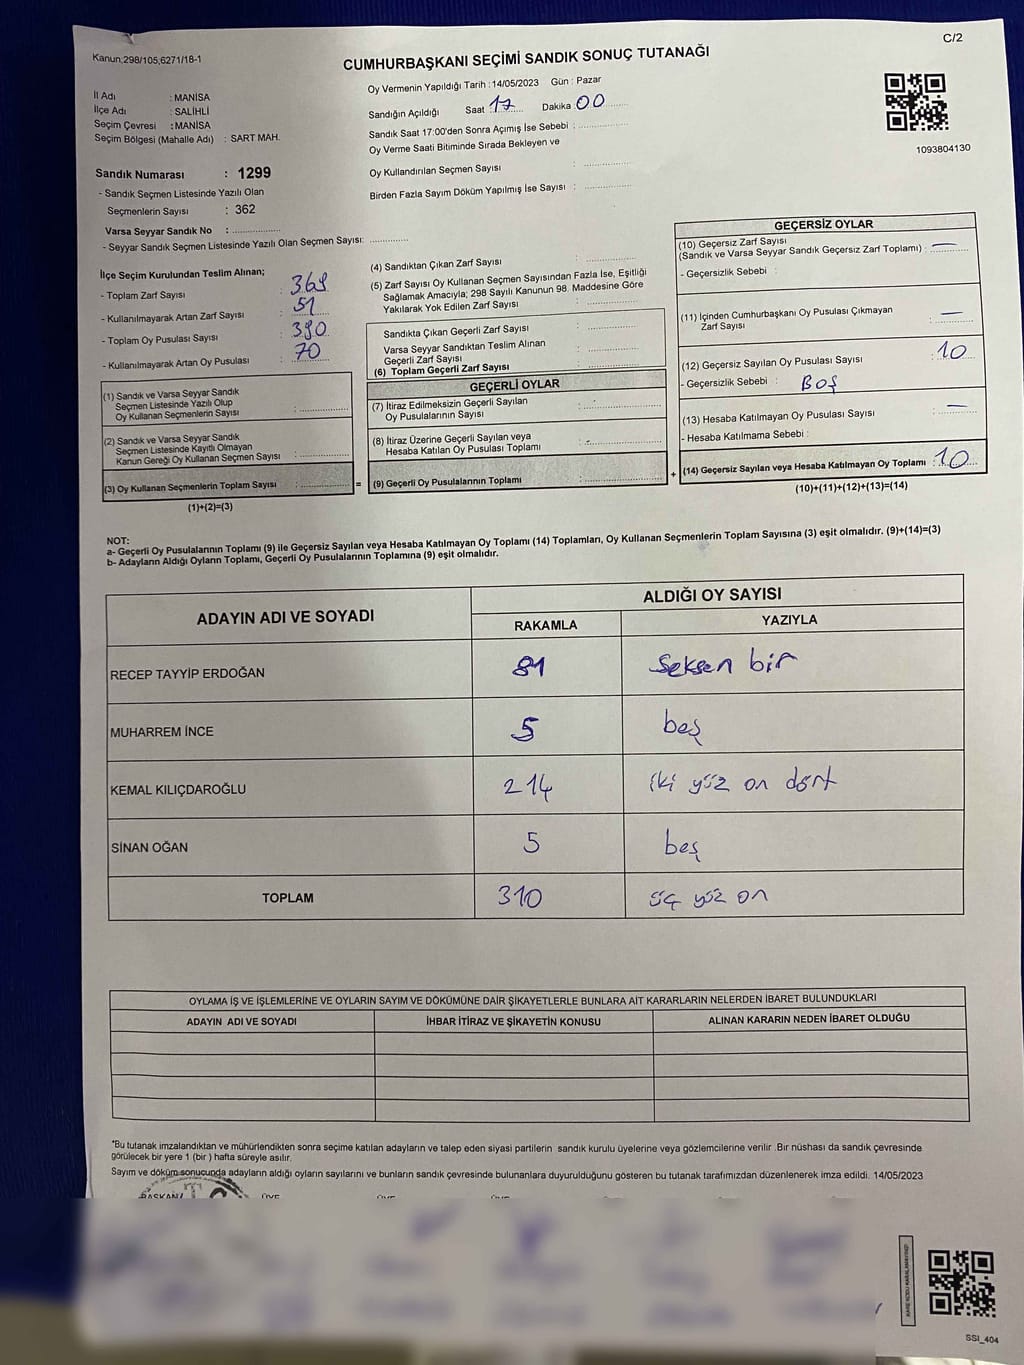 Kanun:298/105,6271/18-1
C/2
CUMHURBAŞKANI SEÇİMİ SANDIK SONUÇ TUTANAĞI
İl Adı : MANİSA
İlçe Adı : SALİHLİ
Seçim Çevresi : MANİSA
Seçim Bölgesi (Mahalle Adı) : SART MAH.
Sandık Numarası : 1299
- Sandık Seçmen Listesinde Yazılı Olan
Seçmenlerin Sayısı : 362
Varsa Seyyar Sandık No :
- Seyyar Sandık Seçmen Listesinde Yazılı Olan Seçmen Sayısı:
Oy Vermenin Yapıldığı Tarih : 14/05/2023 Gün : Pazar
Sandığın Açıldığı Saat 17 Dakika 00
Sandık Saat 17:00'den Sonra Açımış İse Sebebi :
Oy Verme Saati Bitiminde Sırada Bekleyen ve
Oy Kullandırılan Seçmen Sayısı :
Birden Fazla Sayım Döküm Yapılmış İse Sayısı :
1093804130
İlçe Seçim Kurulundan Teslim Alınan;
- Toplam Zarf Sayısı :
- Kullanılmayarak Artan Zarf Sayısı : 51
- Toplam Oy Pusulası Sayısı :
- Kullanılmayarak Artan Oy Pusulası : 70
(1) Sandık ve Varsa Seyyar Sandık
Seçmen Listesinde Yazılı Olup
Oy Kullanan Seçmenlerin Sayısı :
(2) Sandık ve Varsa Seyyar Sandık
Seçmen Listesinde Kayıtlı Olmayan
Kanun Gereği Oy Kullanan Seçmen Sayısı :
(3) Oy Kullanan Seçmenlerin Toplam Sayısı : =
(1)+(2)=(3)
(4) Sandıktan Çıkan Zarf Sayısı :
(5) Zarf Sayısı Oy Kullanan Seçmen Sayısından Fazla İse, Eşitliği
Sağlamak Amacıyla; 298 Sayılı Kanunun 98. Maddesine Göre
Yakılarak Yok Edilen Zarf Sayısı :
Sandıkta Çıkan Geçerli Zarf Sayısı :
Varsa Seyyar Sandıktan Teslim Alınan
Geçerli Zarf Sayısı :
(6) Toplam Geçerli Zarf Sayısı :
GEÇERLİ OYLAR
(7) İtiraz Edilmeksizin Geçerli Sayılan
Oy Pusulalarının Sayısı :
(8) İtiraz Üzerine Geçerli Sayılan veya
Hesaba Katılan Oy Pusulası Toplamı :
(9) Geçerli Oy Pusulalarının Toplamı : +
GEÇERSİZ OYLAR
(10) Geçersiz Zarf Sayısı
(Sandık ve Varsa Seyyar Sandık Geçersiz Zarf Toplamı) : —
- Geçersizlik Sebebi :
(11) İçinden Cumhurbaşkanı Oy Pusulası Çıkmayan
Zarf Sayısı : —
(12) Geçersiz Sayılan Oy Pusulası Sayısı : 10
- Geçersizlik Sebebi : BOŞ
(13) Hesaba Katılmayan Oy Pusulası Sayısı : —
- Hesaba Katılmama Sebebi :
(14) Geçersiz Sayılan veya Hesaba Katılmayan Oy Toplamı : 10
(10)+(11)+(12)+(13)=(14)
NOT:
a- Geçerli Oy Pusulalarının Toplamı (9) ile Geçersiz Sayılan veya Hesaba Katılmayan Oy Toplamı (14) Toplamları, Oy Kullanan Seçmenlerin Toplam Sayısına (3) eşit olmalıdır. (9)+(14)=(3)
b- Adayların Aldığı Oyların Toplamı, Geçerli Oy Pusulalarının Toplamına (9) eşit olmalıdır.
ADAYIN ADI VE SOYADI ALDIĞI OY SAYISI
RAKAMLA YAZIYLA
RECEP TAYYİP ERDOĞAN 81 seksen bir
MUHARREM İNCE 5 beş
KEMAL KILIÇDAROĞLU 214 iki yüz on dört
SİNAN OĞAN 5 beş
TOPLAM 310 üç yüz on
OYLAMA İŞ VE İŞLEMLERİNE VE OYLARIN SAYIM VE DÖKÜMÜNE DAİR ŞİKAYETLERLE BUNLARA AİT KARARLARIN NELERDEN İBARET BULUNDUKLARI
ADAYIN ADI VE SOYADI İHBAR İTİRAZ VE ŞİKAYETİN KONUSU ALINAN KARARIN NEDEN İBARET OLDUĞU
*Bu tutanak imzalandıktan ve mühürlendikten sonra seçime katılan adayların ve talep eden siyasi partilerin sandık kurulu üyelerine veya gözlemcilerine verilir .Bir nüshası da sandık çevresinde
görülecek bir yere 1 (bir ) hafta süreyle asılır.
Sayım ve döküm sonucunda adayların aldığı oyların sayılarını ve bunların sandık çevresinde bulunanlara duyurulduğunu gösteren bu tutanak tarafımızdan düzenlenerek imza edildi. 14/05/2023
BAŞKAN ÜYE ÜYE ÜYE
SSI_404